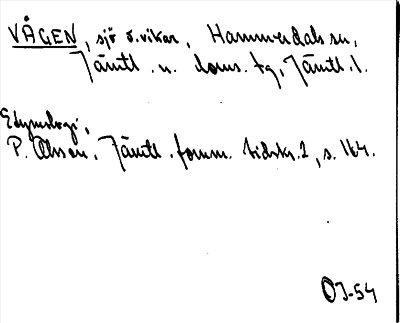 VÅGEN, sjö o. vikar, Hammerdals sn,
Jämtl. n. doms. tg, Jämtl. l.
Etymologi,
P. Olsson, Jämtl. fornm. tidskr. 2, s. 164.
OJ-54